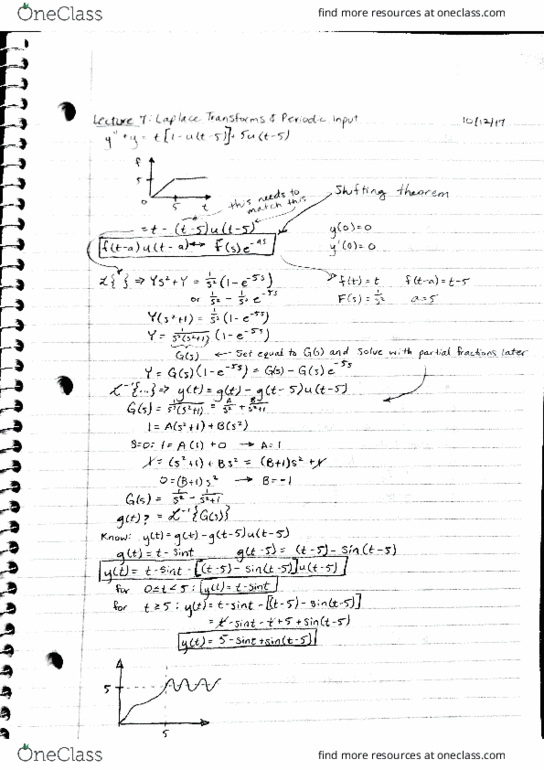 OneClass
find more resources at oneclass.com
Lecture 7: Laplace Transforms & Periodic Input 10/12/17
y'' + y = t[1-u(t-5)] + 5u(t-5)
f
5
0 5 t
this needs to match this
Shifting theorem
= t - (t-5)u(t-5) y(0)=0
f(t-a)u(t-a) ↔ F(s)e^-as y'(0)=0
L{ } ⇒ Ys²+Y = 1/s² (1-e^-5s) f(t)=t f(t-a)=t-5
or 1/s² - 1/s² e^-5s F(s)=1/s² a=5
Y(s²+1) = 1/s² (1-e^-5s)
Y = 1/s²(s²+1) (1-e^-5s)
G(s) ← Set equal to G(s) and solve with partial fractions later
Y = G(s)(1-e^-5s) = G(s) - G(s)e^-5s
L^-1{...} ⇒ y(t) = g(t) - g(t-5)u(t-5)
G(s) = 1/s²(s²+1) = A/s² + B/s²+1
1 = A(s²+1) + B(s²)
s=0: 1 = A(1) + 0 → A=1
1 = (s²+1) + Bs² = (B+1)s² + 1
0 = (B+1)s² → B=-1
G(s) = 1/s² - 1/s²+1
g(t)? = L^-1{G(s)}
Know: y(t) = g(t) - g(t-5)u(t-5)
g(t) = t - sint g(t-5) = (t-5) - sin(t-5)
y(t) = t - sint - [(t-5) - sin(t-5)]u(t-5)
for 0≤t<5: y(t) = t - sint
for t≥5: y(t) = t - sint - [(t-5) - sin(t-5)]
= t - sint - t + 5 + sin(t-5)
y(t) = 5 - sint + sin(t-5)
5
5
OneClass
find more resources at oneclass.com